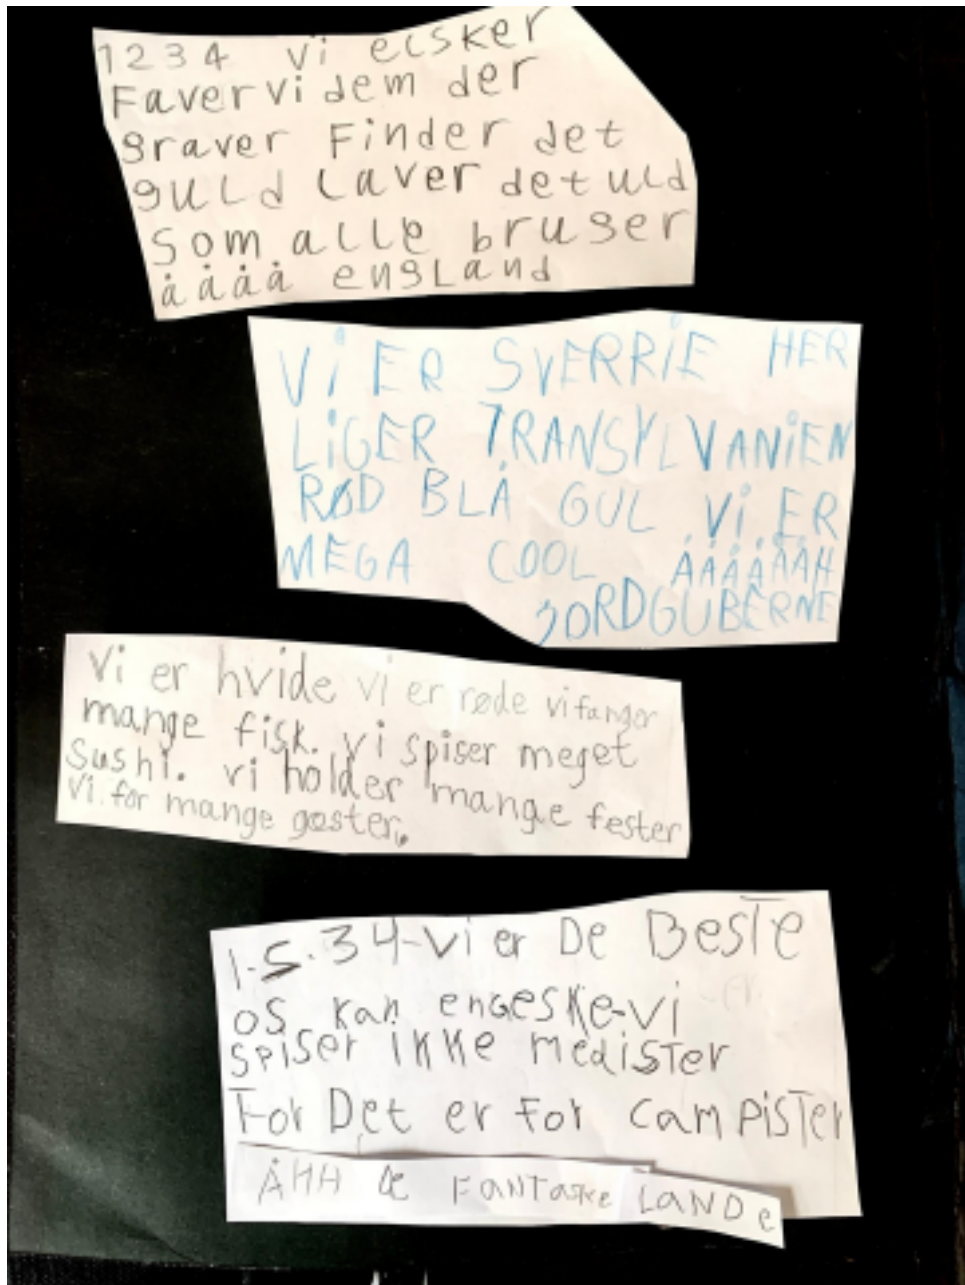 1234 vi elsker
Faver vi dem der
graver Finder det
guld Laver det uld
Som alle bruger
åååå england
Vi ER SVERRiE HER
LiGER TRANSYLVANiEN
RØD BLÅ GUL Vi ER
MEGA COOL ÅÅÅÅÅÅH
JORDGUBERNE
Vi er hvide vi er røde vi fanger
mange fisk. vi spiser meget
Sushi. vi holder mange fester
Vi for mange gæster.
1-S.34-Vi er De BesTe
os kan engesKe-vi
spiser iKKe medisTer
For Det er For campisTer
ÅHH De FanTasKe LANDe